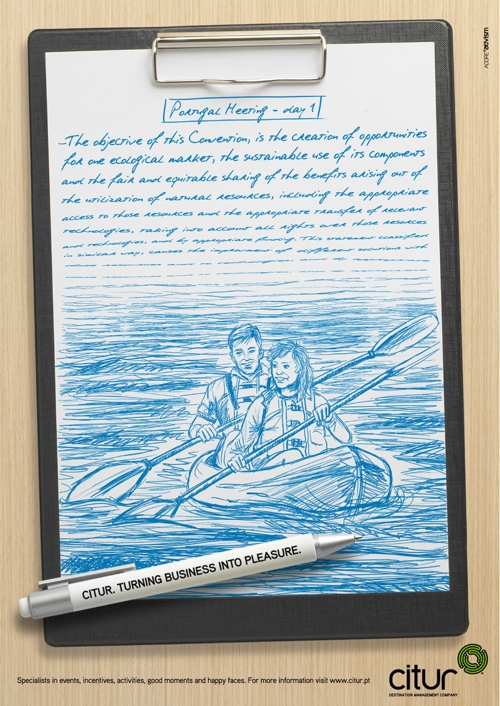 ADOREacıvısm
Portugal Meeting - day 1
-The objective of this Convention, is the creation of opportunities
for one ecological market, the sustainable use of its components
and the fair and equitable sharing of the benefits arising out of
the utilization of natural resources, including the appropriate
access to those resources and the appropriate transfer of relevant
technologies, taking into account all rights over those resources
and technologies, and by appropriate funding. This statement classified
in similar way, causes the improvement of different solutions with
CITUR. TURNING BUSINESS INTO PLEASURE.
Specialists in events, incentives, activities, good moments and happy faces. For more information visit www.citur.pt
citur
DESTINATION MANAGEMENT COMPANY